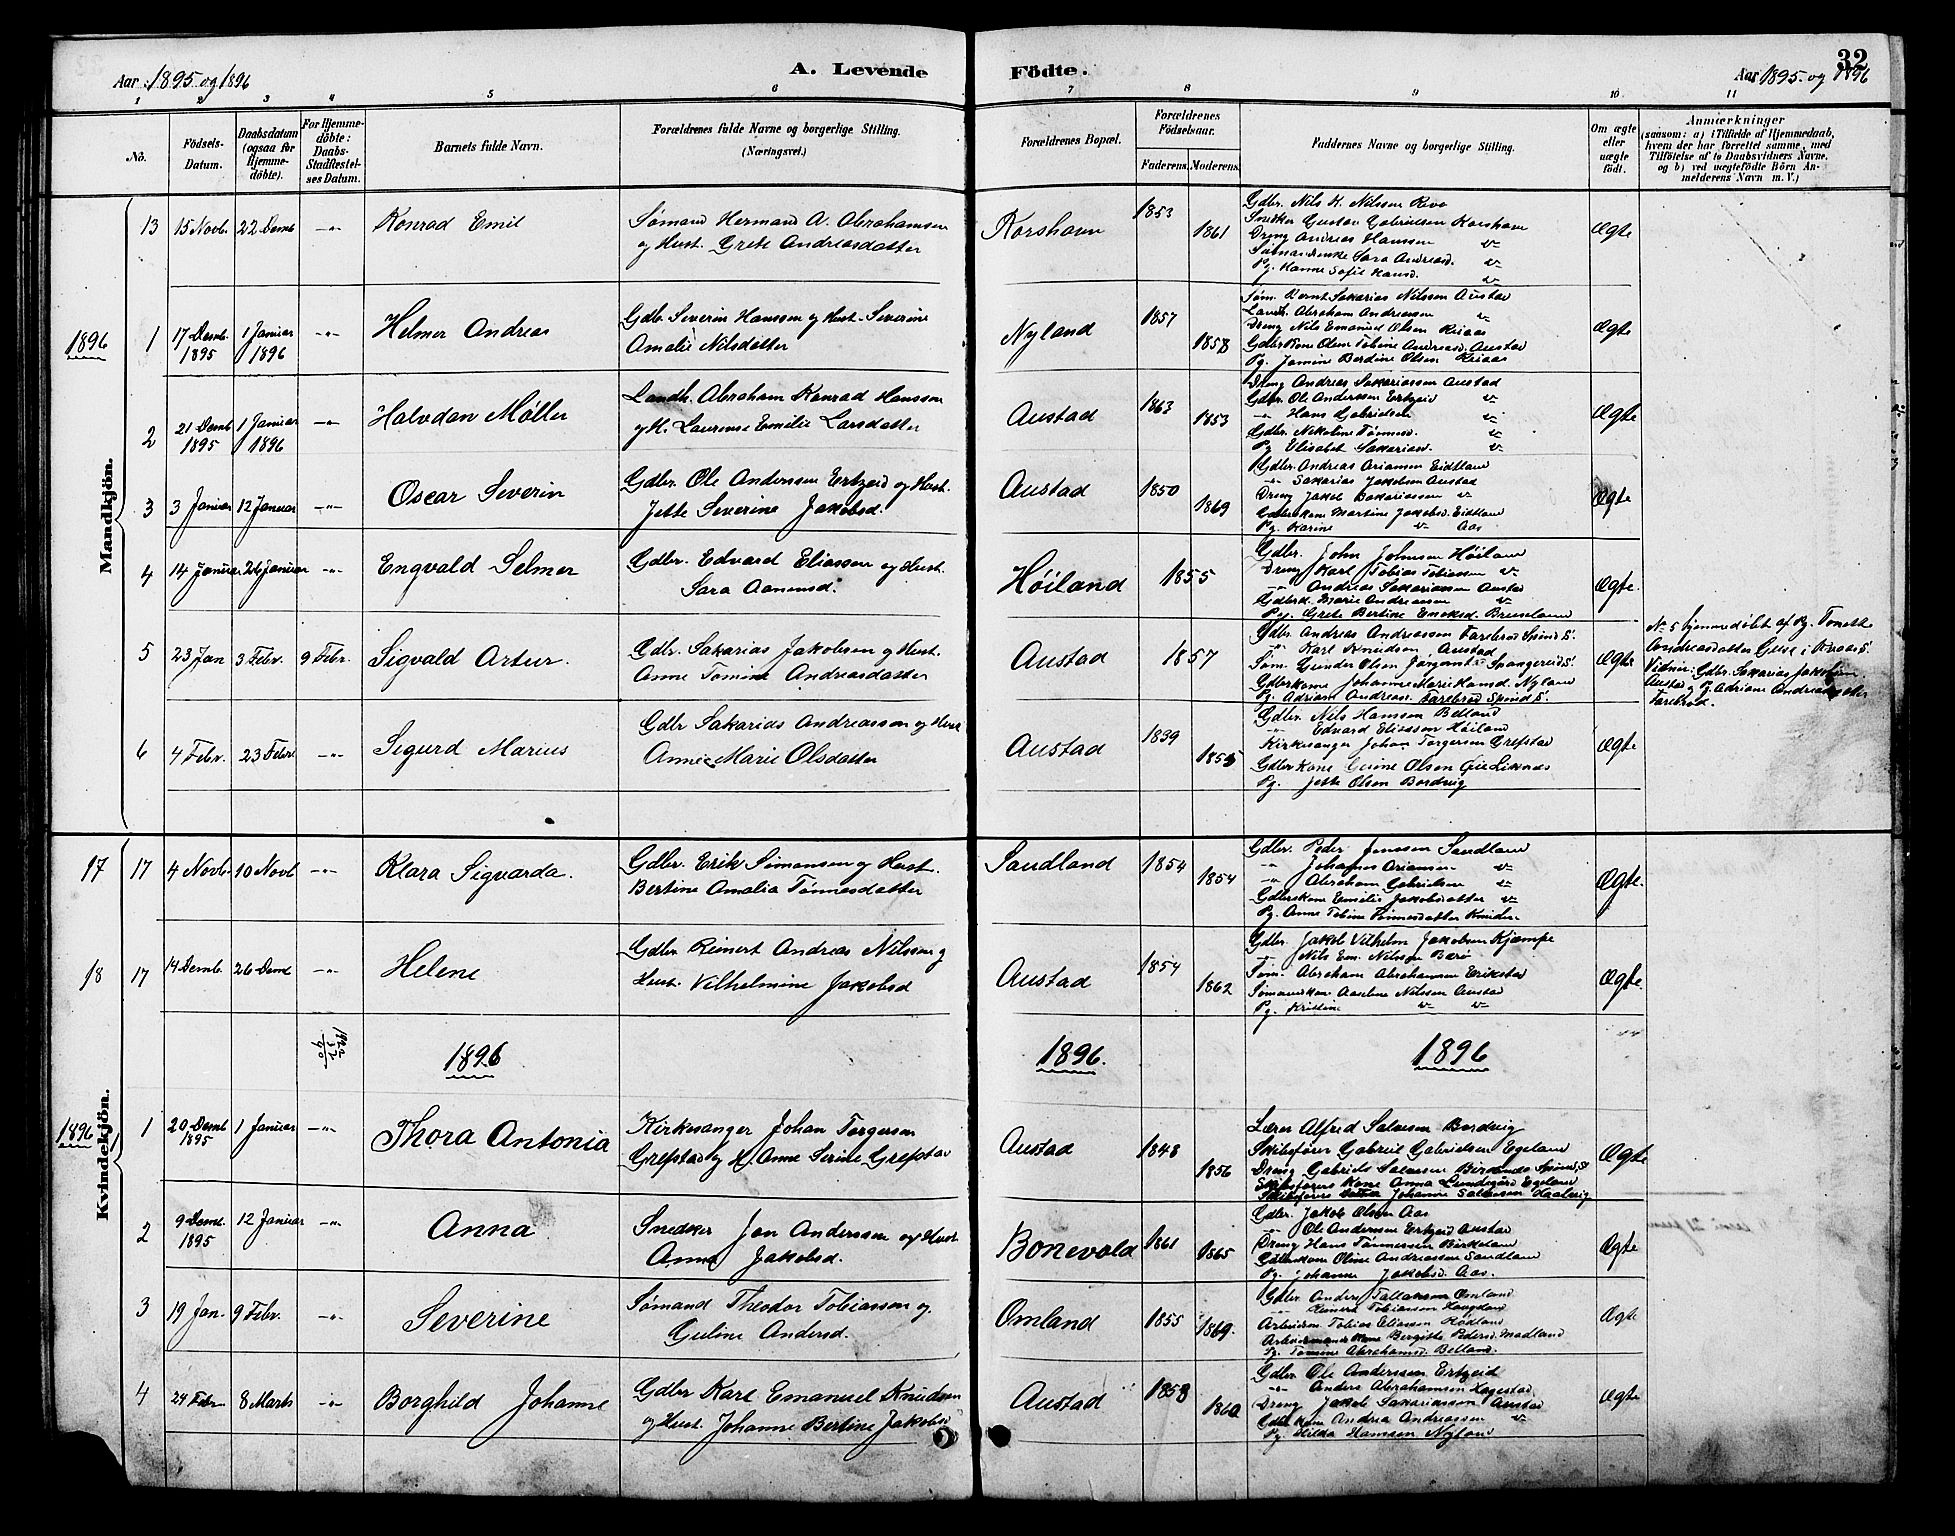 Aar 1895 og 1896
A. Levende
Födte.
32
Aar 1895 og 1896
1 2 3 4 5 6 7 8 9 10 11
No.
Födsels-
Datum.
Daabsdatum
(ogsaa for
Hjemme-
döbte).
For Hjemme-
döbte:
Daabs-
Stadfæstel-
ses Datum.
Barnets fulde Navn.
Forældrenes fulde Navne og borgerlige Stilling.
(Næringsvei.)
Forældrenes Bopæl.
Forældrenes
Födselsaar.
Faderens. Moderens.
Faddernes Navne og borgerlige Stilling.
Om ægte
eller
uægte
födt.
Anmærkninger
(saasom: a) i Tilfælde af Hjemmedaab,
hvem der har forrettet samme, med
Tilföielse af to Daabsvidners Navne,
og b) ved uægtefödte Börn An-
melderens Navn m. V.)
Mandkjön.
13 15 Novb. 22 Demb -"- Konrad Emil
Sømand Hermand A. Abrahamsen
og Hust. Grete Andreasdatter
Korshavn 1853 1861
Gdbr. Nils K. Nilssen
Snedker Gustav Gabrielsen Korshavn
Dreng Andreas Hanssen
Sara Andreasd.
Pg. Hanne Sofie Hansd.
Ægte
1896
1 17 Demb. 1895 1 Januar 1896 -"- Helmer Andreas
Gdbr Severin Hanssen og Hust. Severine
Amalie Nilsdatter
Nyland 1857 1858
Søm. Bernt Sakarias Nilssen Austad
Landh. Abraham Andreassen
Dreng Nils Emanuel Olsen
Gdbr Kone Olene Tobine Andreasd. Austad
Pg. Jomine Bertine Olsen
Ægte
2 21 Demb 1895 1 Januar 1896 -"- Halvdan Møller
Landh. Abraham Konrad Hanssen
og H. Laurense Emilie Larsdatter
Austad 1863 1853
Dreng Andreas Sakariassen Austad
Gdbr. Ole Anderssen Ertzeid
-"- Hans Gabrielsen
Gdbr. Nikoline Tønnesd.
Pg Elisabet Sakariasd.
Ægte
3 3 Januar 12 Januar -"- Oscar Severin
Gdbr. Ole Anderssen Ertzeid og Hust.
Jette Severine Jakobsd.
Austad 1850 1869
Gdbr. Andreas Eidtland
-"- Sakarias Jakobsen Austad
Dreng Jakob Sakariassen
Gdbrskone Martine Jakobsd. Eidtland
Pg. Karine Aas
Ægte
4 14 Januar 26 Januar -"- Engvald Selmer
Gdbr. Edvard Eliassen og Hust.
Sara Aanensd.
Høiland 1855
Gdbr. John Johnsen Høiland
Dreng Karl Tobias Tobiassen
-"- Andreas Sakariassen Austad
Gdbrsk. Marie Andreassen
Pg. Grete Bertine
Ægte.
5 23 Jan 3 Febr. 9 Febr. Sigvald Artur.
Gdbr. Sakarias Jakobsen og Hust.
Anne Tomine Andreasdatter
Austad 1857
Gdbr. Andreas Andreassen Farebrød Spind S.
-"- Karl Knudsen, Austad
Søm. Gunder Olsen Spangereid S.
Gdbrkone Johanne Marie Hansd. Nyland
Pg. Adriane Andreasd. Farebrød Spind S.
Ægte
No 5 hjemmedøbt af Pg. Tonette
Andreasdatter
Vidner: Gdbr. Sakarias Jakobsen
Austad og Pg. Adriane Andreasdatter
Farebrød.
6 4 Febr. 23 Febr -"- Sigurd Marius
Gdbr Sakarias Andreassen og Hust
Anne Marie Olsdatter
Austad 1839 1855
Gdbr. Nils Hanssen Belland
Edvard Eliassen Høiland
Kirkesanger Johan Torgersen Grefstad
Gdbr Kone Gusine Olsen
Pg. Jette Olsen Bordvig
Ægte
Kvindekjön.
17 17 4 Novb. 10 Novb -"- Klara Sigvarda.
Gdbr. Erik Simonsen og Hust.
Bertine Amalia Tønnesdatter
Sandland 1854 1854
Gdbr. Peder Jenssen Sandland
-"- Johannes
-"- Abraham Gabrielsen
Gdbrskone Emilie Jakobsdatter
Pg. Anne Tobine Tønnesdatter
Ægte.
18 17 14 Demb. 26 Demb -"- Helene
Gdbr. Reinert Andreas Nilssen og
Hust. Vilhelmine Jakobsd
Austad 1854 1862
Gdbr. Jakob Vilhelm Jakobsen Kjæmpe
-"- Nils Em. Nilssen
Søm. Abraham Abrahamsen Erikstad
Nilssen Austad
Pg. Kristine
Ægte.
1896 1896. 1896
1896
1 20 Demb 1895 1 Januar -"- Thora Antonia
Kirkesanger Johan Torgersen
Grefstad og H. Anne Serine Grefstad
Austad 1848 1856
Lærer Alfred Salvesen Bordvig
Skibsfører Gabriel Gabrielsen Egeland
Dreng Gabriel Salvesen
Skibsførers Kone Anna Lundegård Egeland
Skibsførers Johanne Salvesen
Ægte
2 9 Demb. 1895 12 Januar -"- Anna
Snedker Jon Anderssen og Hust.
Anna Jakobsd.
Bonevold 1861 1865
Gdbr. Jakob Olsen Aas
-"- Ole Anderssen Ertzeid Austad
Dreng Hans Tønnessen Birkeland
Gdbrskone Oline Andreassen Sandland
Pg. Johanne Jakobsd. Aas.
Ægte
3 19 Jan. 9 Febr. -"- Severine
Sømand Theodor Tobiassen og
Guline Andersd.
Omland 1855 1869.
Gdbr. Anders Tallaksen Omland
-"- Reinert Tobiassen
Arbeidsm. Tobias Eliassen Rødland
Arbeidsmands Kone Bergitte Pedersd. Madland
Pg. Tomine Abrahamsd. Belland.
Ægte
4 24 Febr 8 Marts -"- Borghild Johanne
Gdbr Karl Emanuel Knudsen
og Hust. Johanne Bertine Jakobsd
Austad 1858 1860
Gdbr. Ole Anderssen Ertzeid
-"- Anders Abrahamsen Hagestad
Dreng Jakob Sakariassen Austad
Gdbr Kone Andrea Andreassen
Pg Hilda Hanssen Nyland
Ægte